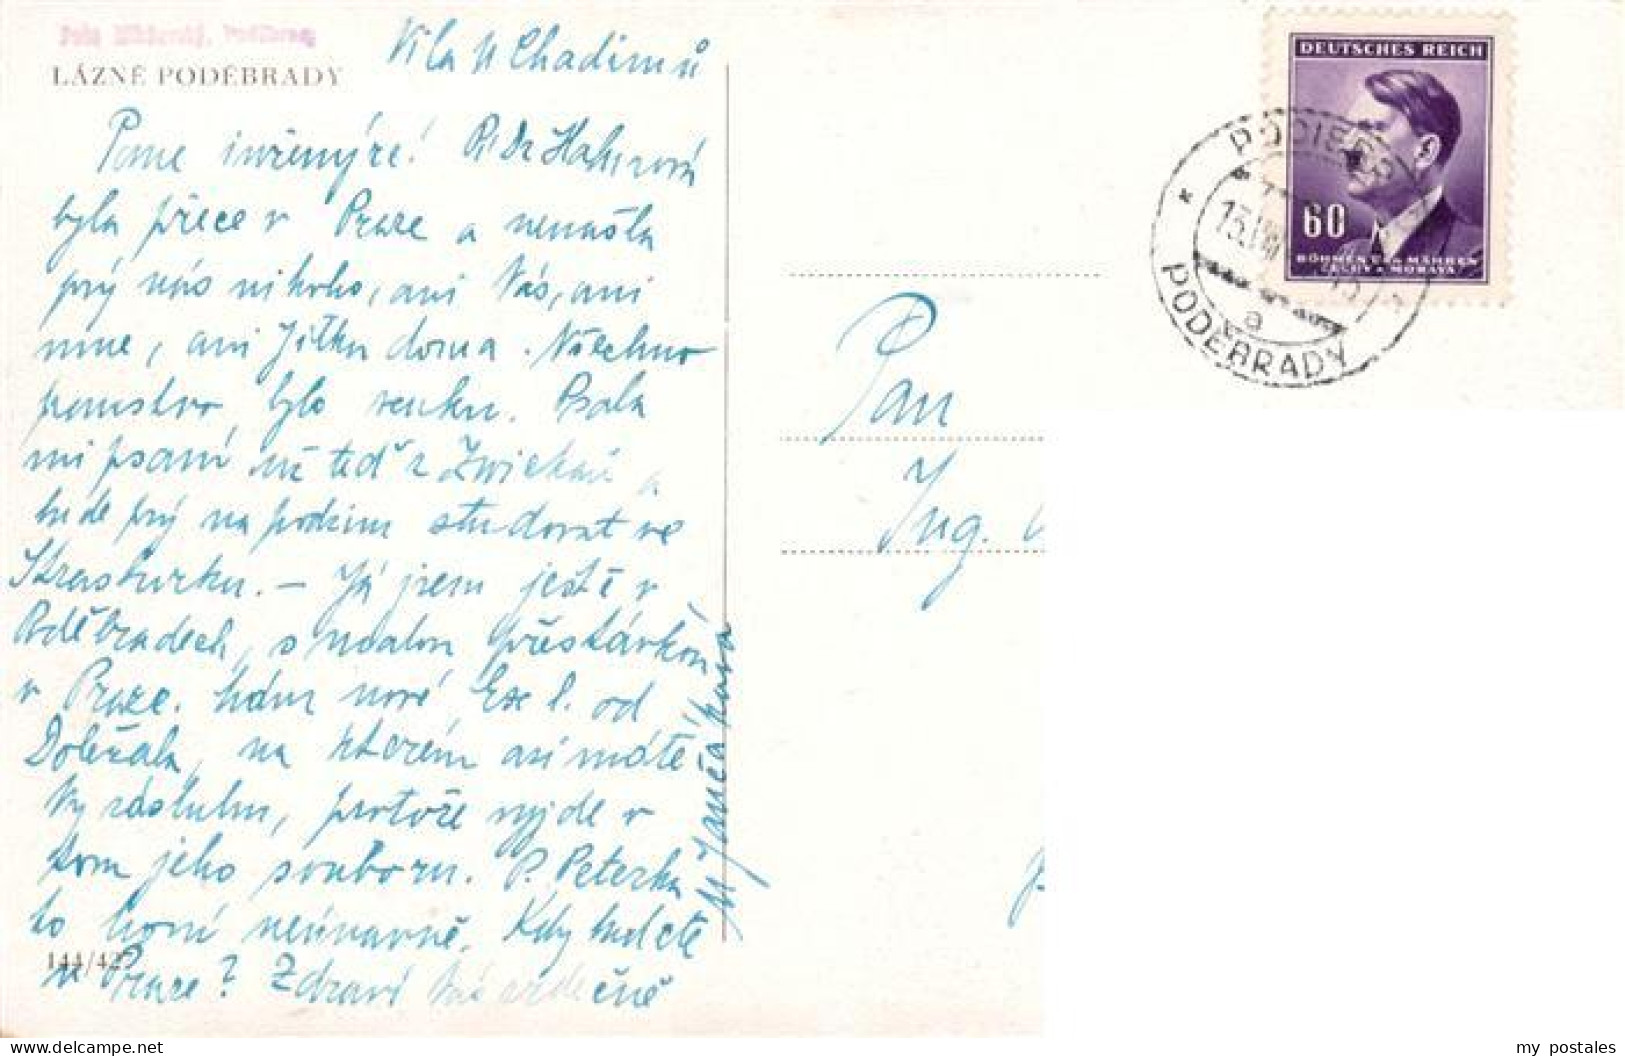 LÁZNĚ PODĚBRADY
Vila u Chadimů
Pane inženýre! Pí Dr
byla přece v Praze a nenašla
prý nás nikoho, ani Vás, ani
mne, ani Jitku doma. Všechno
panstvo bylo venku. Psala
mi psaní už teď z Zwickau a
bude prý na podzim studovat ve
Strasburku. – Já jsem ještě v
Poděbradech, s malou přestávkou
v Praze. Mám nové Ex l. od
Dobežala, na kterém asi máte
Vy zásluhu, protože vyjde v
tom jeho souboru. P. Peterka
to honí neúnavně. Kdy budete
v Praze? Zdraví Vás srdečně
M Jančáková
144/42
Pan
Ing.
DEUTSCHES REICH
60
BÖHMEN UND MÄHREN
ČECHY A MORAVA
PODIEBRAD
a
PODĚBRADY
my_postales